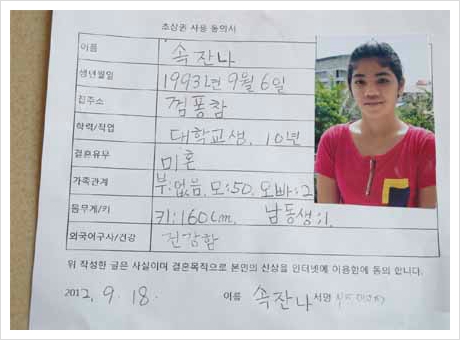 초상권 사용 동의서
이름 속잔나
생년월일 1993년 9월 6일
집주소 껌퐁참
학력/직업 대학교생, 10년
결혼유무 미혼
가족관계 부:없음, 모:50, 오빠:2
몸무게/키 키:160cm, 남동생:1.
외국어구사/건강 건강함
위 작성한 글은 사실이며 결혼목적으로 본인의 신상을 인터넷에 이용함에 동의 합니다.
2012. 9. 18. 이름 속잔나 서명